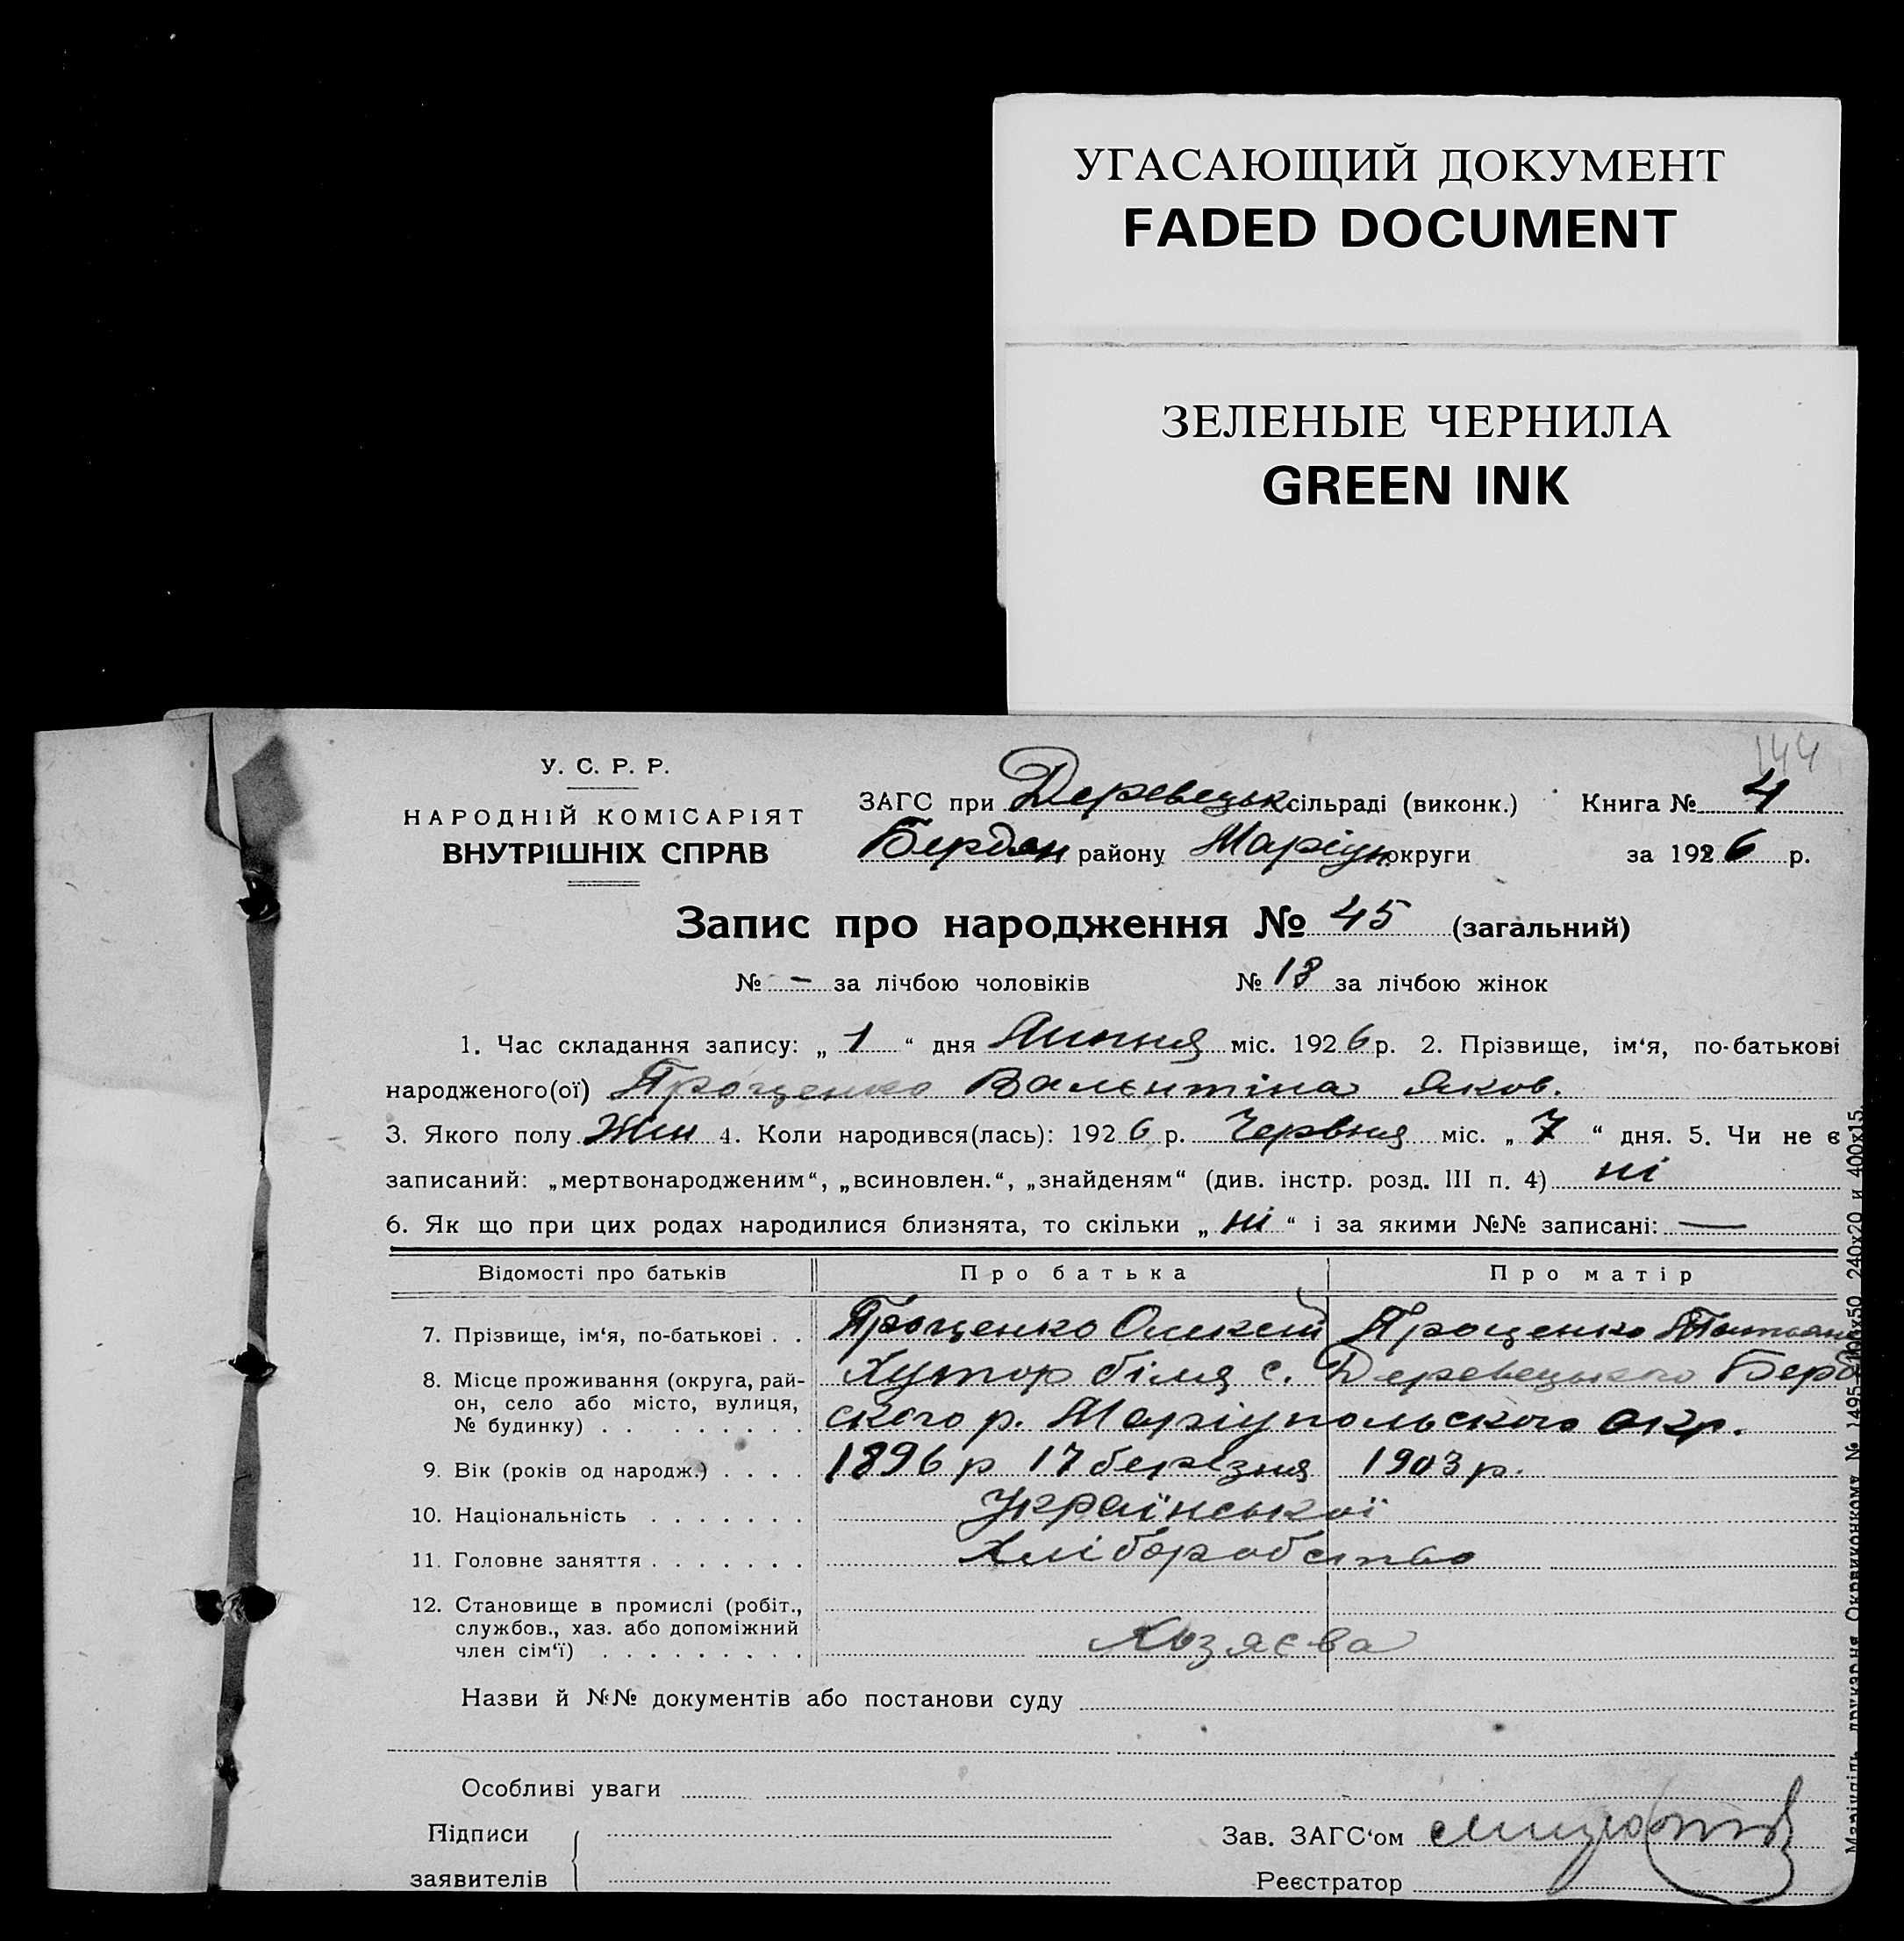 УГАСАЮЩИЙ ДОКУМЕНТ
FADED DOCUMENT
ЗЕЛЕНЫЕ ЧЕРНИЛА
GREEN INK
144
У. С. Р. Р.
НАРОДНІЙ КОМІСАРІЯТ
ВНУТРІШНІХ СПРАВ
ЗАГС при Деревецьк сільраді (виконк.) Книга № 4
Бердян району Маріуп округи за 1926 р.
Запис про народження № 45 (загальний)
№ — за лічбою чоловіків № 18 за лічбою жінок
1. Час складання запису: „ 1 “ дня Липня міс. 1926 р. 2. Прізвище, ім‘я, по-батькові
народженого(ої) Проценко Валєнтіна Яков.
3. Якого полу Жін 4. Коли народився(лась): 1926 р. Червня міс. „ 7 “ дня. 5. Чи не є
записаний: „мертвонародженим“, „всиновлен.“, „знайденям“ (див. інстр. розд. III п. 4) ні
6. Як що при цих родах народилися близнята, то скільки „ ні “ і за якими №№ записані: —
Відомості про батьків Про батька Про матір
7. Прізвище, ім‘я, по-батькові . . Проценко Олексій Проценко
8. Місце проживання (округа, рай-
он, село або місто, вулиця,
№ будинку) . . . . . . . . Хутор біля с. Деревецького Бердя
ского р. Маріупольского окр.
9. Вік (років од народж.) . . . . 1896 р 17 березня 1903 р.
10. Національність . . . . . . . Української
11. Головне заняття . . . . . . . Хліборобство
12. Становище в промислі (робіт.,
службов., хаз. або допоміжний
член сім‘ї) . . . . . . . . . Хозяєва
Назви й №№ документів або постанови суду
Особливі уваги
Підписи
заявителів
Зав. ЗАГС‘ом
Реєстратор
Маріупіль, друкарня Окрвиконкому № 1495—
240x20 и 400x15.